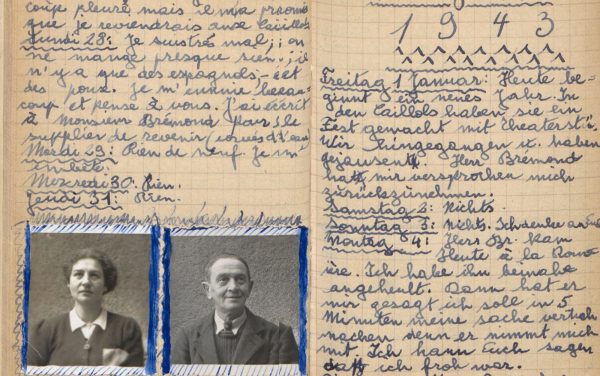 coup pleuré mais il m'a promis
que je reviendrais aux Caillols
Lundi 28: Je suis très mal; on
ne mange presque rien, il
n'y a que des espagnols, et
des poux. Je m'ennuie beau-
coup et pense à vous. J'ai écrit
à Monsieur Brémond pour le
supplier de revenir
Mardi 29: Rien de neuf. Je m'
embête.
Mercredi 30: Rien.
Jeudi 31: Rien
1943
Freitag 1 Januar: Heute be-
ginnt ein neues Jahr. In
den Caillols haben sie ein
Fest gemacht mit theaterstü.
Wir hingegangen u. haben
Herr Bremond
hat mir versprochen mich
zurückzunehmen.
Samstag 2: Nichts.
Sonntag 3: Nichts. Ich denke an Euch
Montag 4: Herr Br. kam
Heute à la Rou
ière. Ich habe ihn beinahe
angeheult. Dann hat er
mir gesagt ich soll in 5
Minuten meine sache
machen denn er nimmt mich
mit. Ich kann Euch sagen
daß ich froh war.